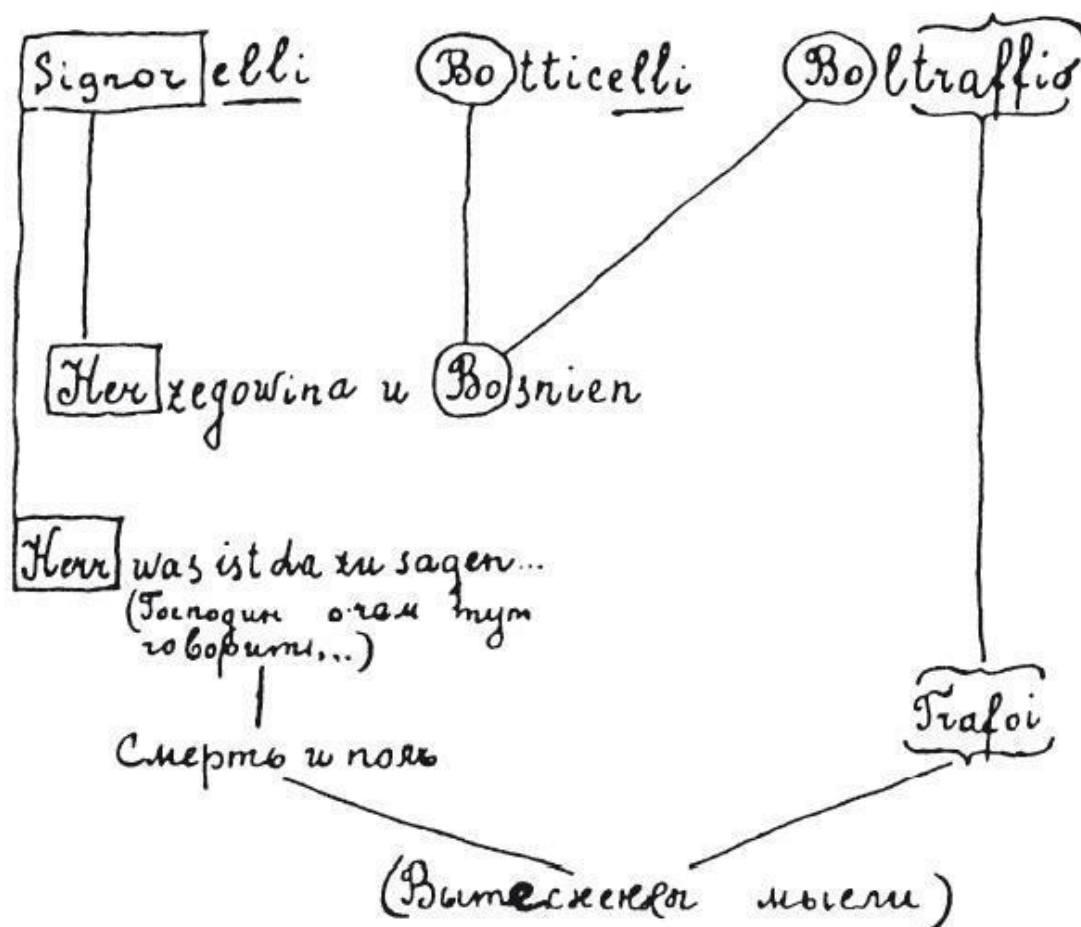 Signorelli Botticelli Boltraffio
Herzegowina и Bosnien
Herr was ist da zu sagen...
(Господин о чем тут
говорить...)
Trafoi
Смерть и полъ
(Вытеснены мысли)